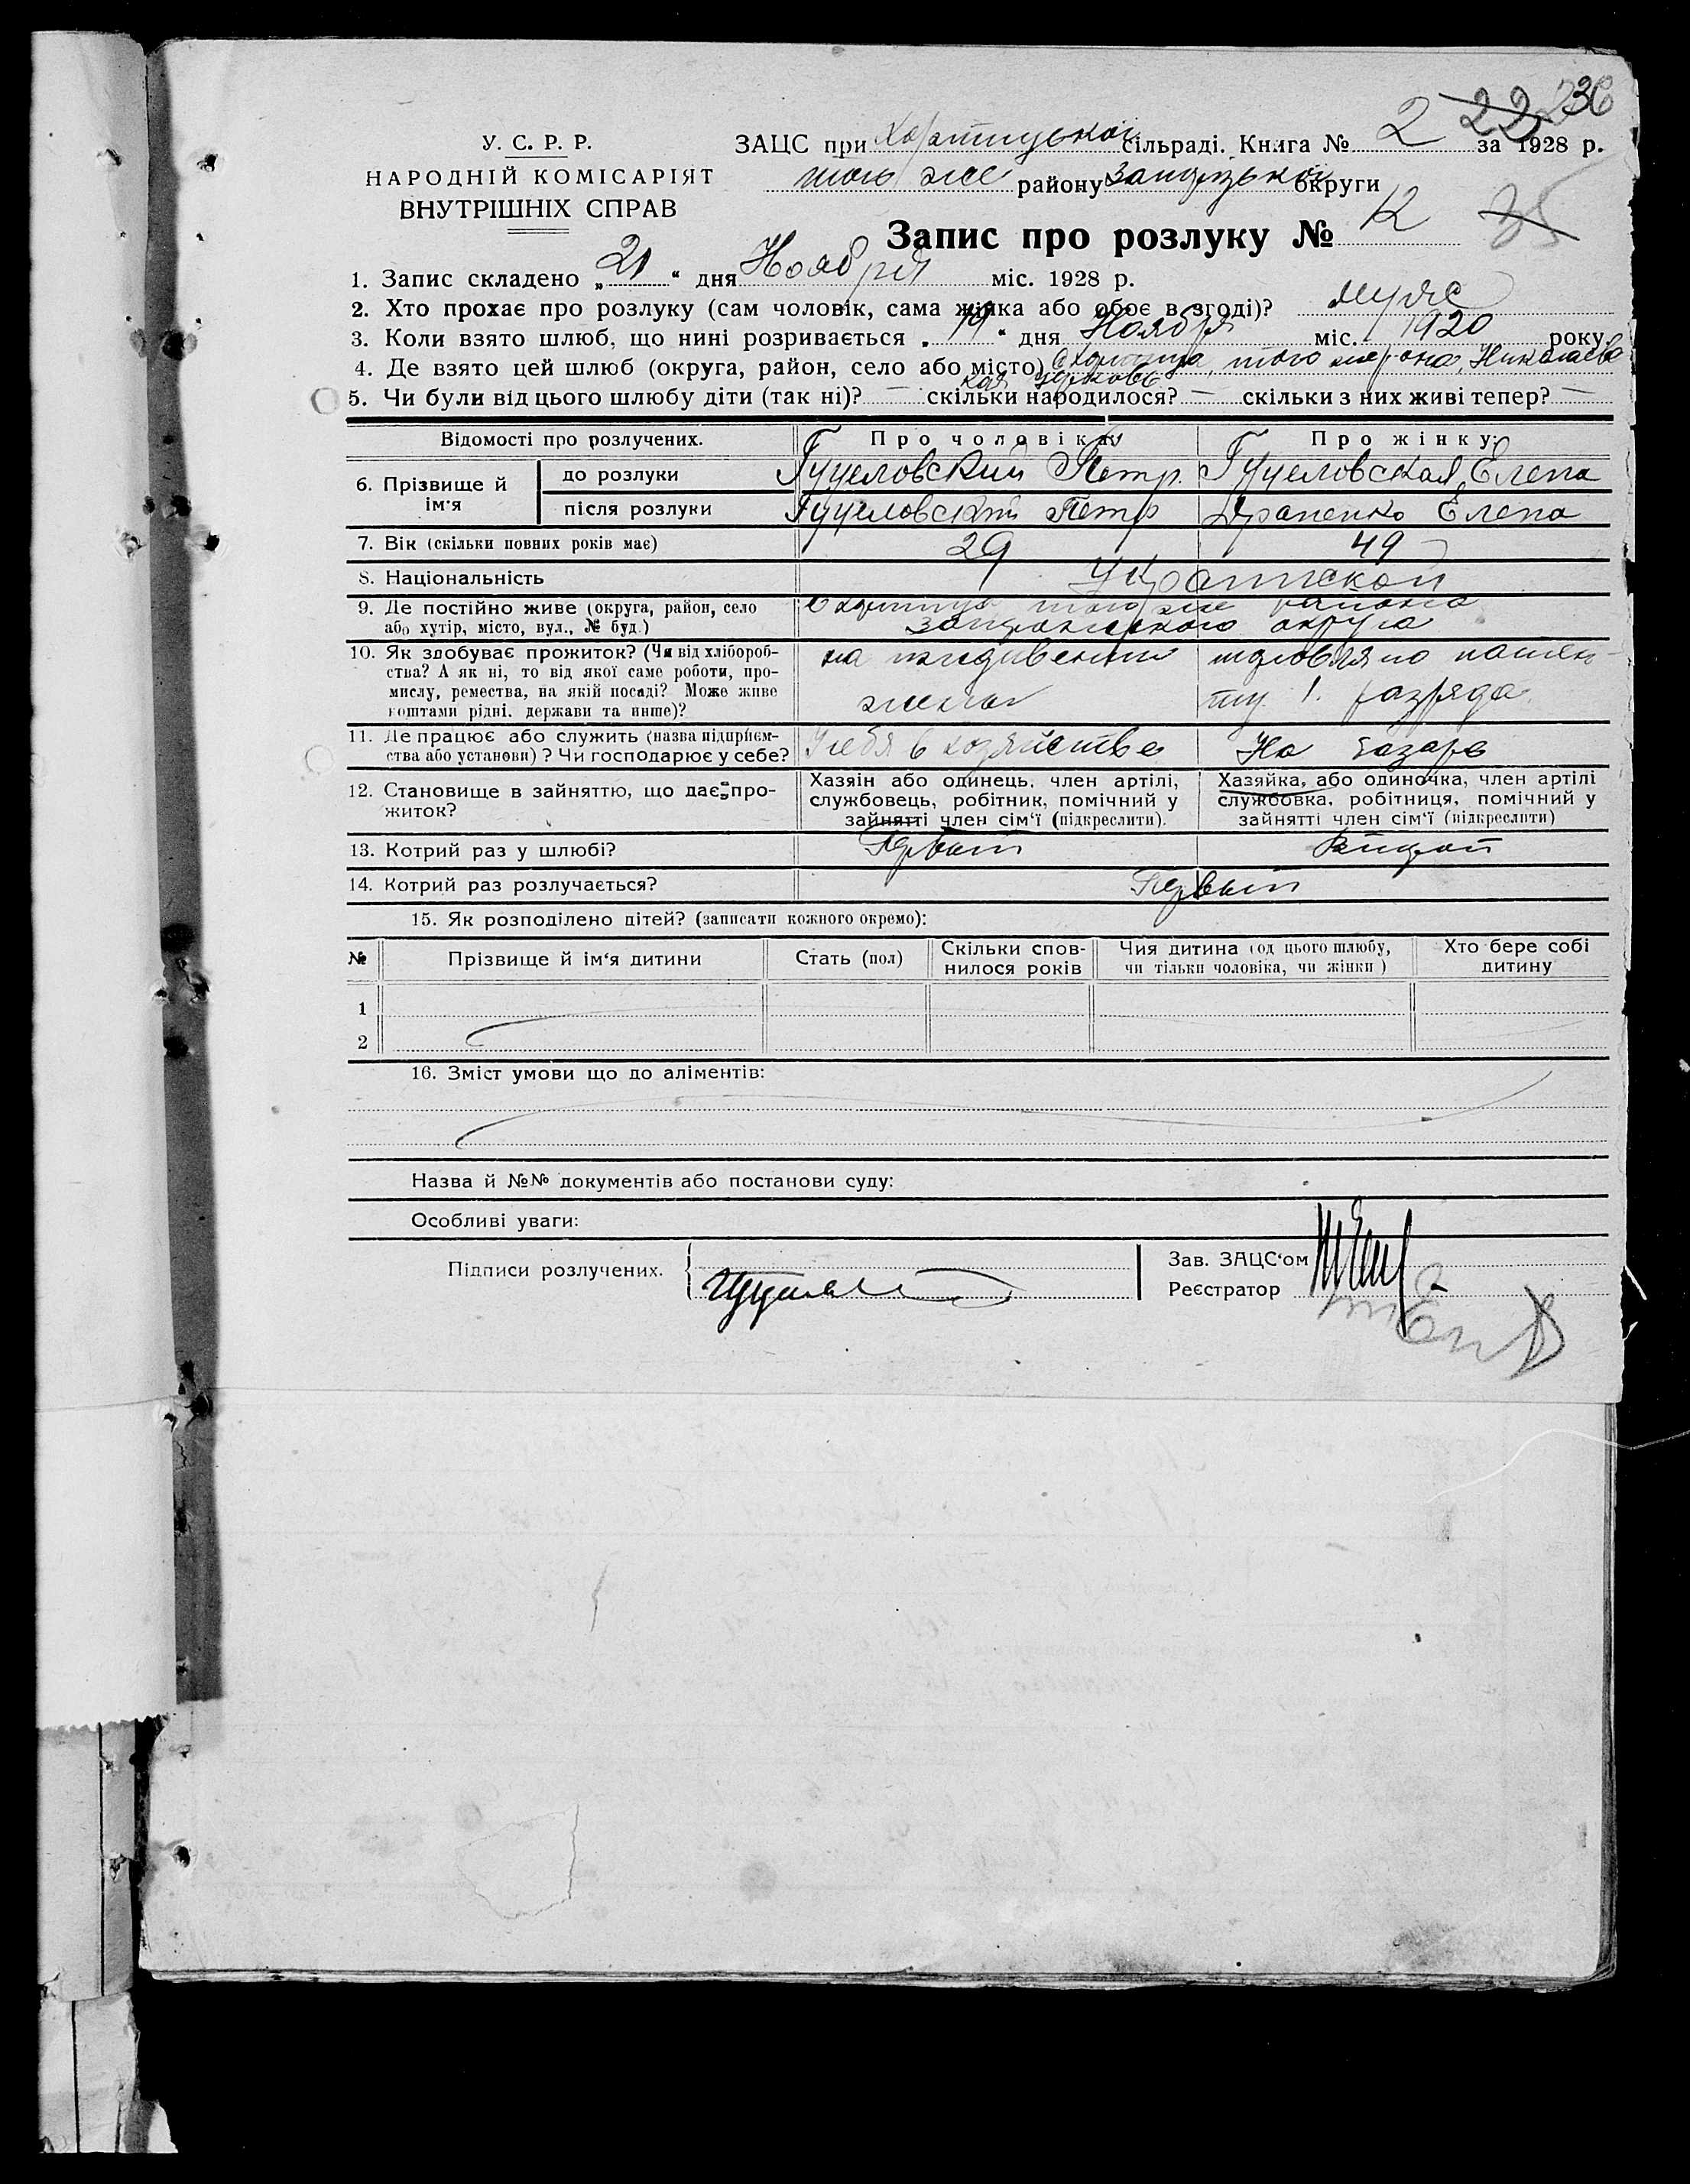 236
У. С. Р. Р.
НАРОДНІЙ КОМІСАРІЯТ
ВНУТРІШНІХ СПРАВ
ЗАЦС при Хортицькой сільраді. Книга № 2 22 за 1928 р.
того же району Запорізької округи
Запис про розлуку № 12 35
1. Запис складено „21“ дня Ноября міс. 1928 р.
2. Хто прохає про розлуку (сам чоловік, сама жінка або обоє в згоді)? муж
3. Коли взято шлюб, що нині розривається „19“ дня Ноября міс. 1920 року.
4. Де взято цей шлюб (округа, район, село або місто) с Хортица, того же района, Николаев
ская церковь
5. Чи були від цього шлюбу діти (так ні)? — скільки народилося? — скільки з них живі тепер? —
Відомості про розлучених. Про чоловіка: Про жінку:
6. Прізвище й ім'я
до розлуки Гуцеловский Петр. Гуцеловская Елена
після розлуки Гуцеловский Петр Драненко Елена
7. Вік (скільки повних років має) 29 49
8. Національність Украинской
9. Де постійно живе (округа, район, село або хутір, місто, вул., № буд.) с Хортица того же района
Запорожского округа
10. Як здобуває прожиток? (Чи від хлібороб-
ства? А як ні, то від якої саме роботи, про-
мислу, ремества, на якій посаді? Може живе
коштами рідні, держави та инше)?
на иждивении жены
торговля по патен-
ту 1. разряда
11. Де працює або служить (назва підприєм-
ства або установи)? Чи господарює у себе?
У себя в хозяйстве На базаре
12. Становище в зайняттю, що дає про-
житок?
Хазяін або одинець, член артілі,
службовець, робітник, помічний у
зайнятті член сім'ї (підкреслити).
Хазяйка, або одиночка, член артілі
службовка, робітниця, помічний у
зайнятті член сім'ї (підкреслити)
13. Котрий раз у шлюбі? Первый Второй
14. Котрий раз розлучається? Первый
15. Як розподілено дітей? (записати кожного окремо):
№ Прізвище й ім'я дитини Стать (пол) Скільки спов-
нилося років Чия дитина (од цього шлюбу,
чи тільки чоловіка, чи жінки) Хто бере собі
дитину
1
2
16. Зміст умови що до аліментів:
Назва й №№ документів або постанови суду:
Особливі уваги:
Підписи розлучених.
Зав. ЗАЦС'ом
Реєстратор